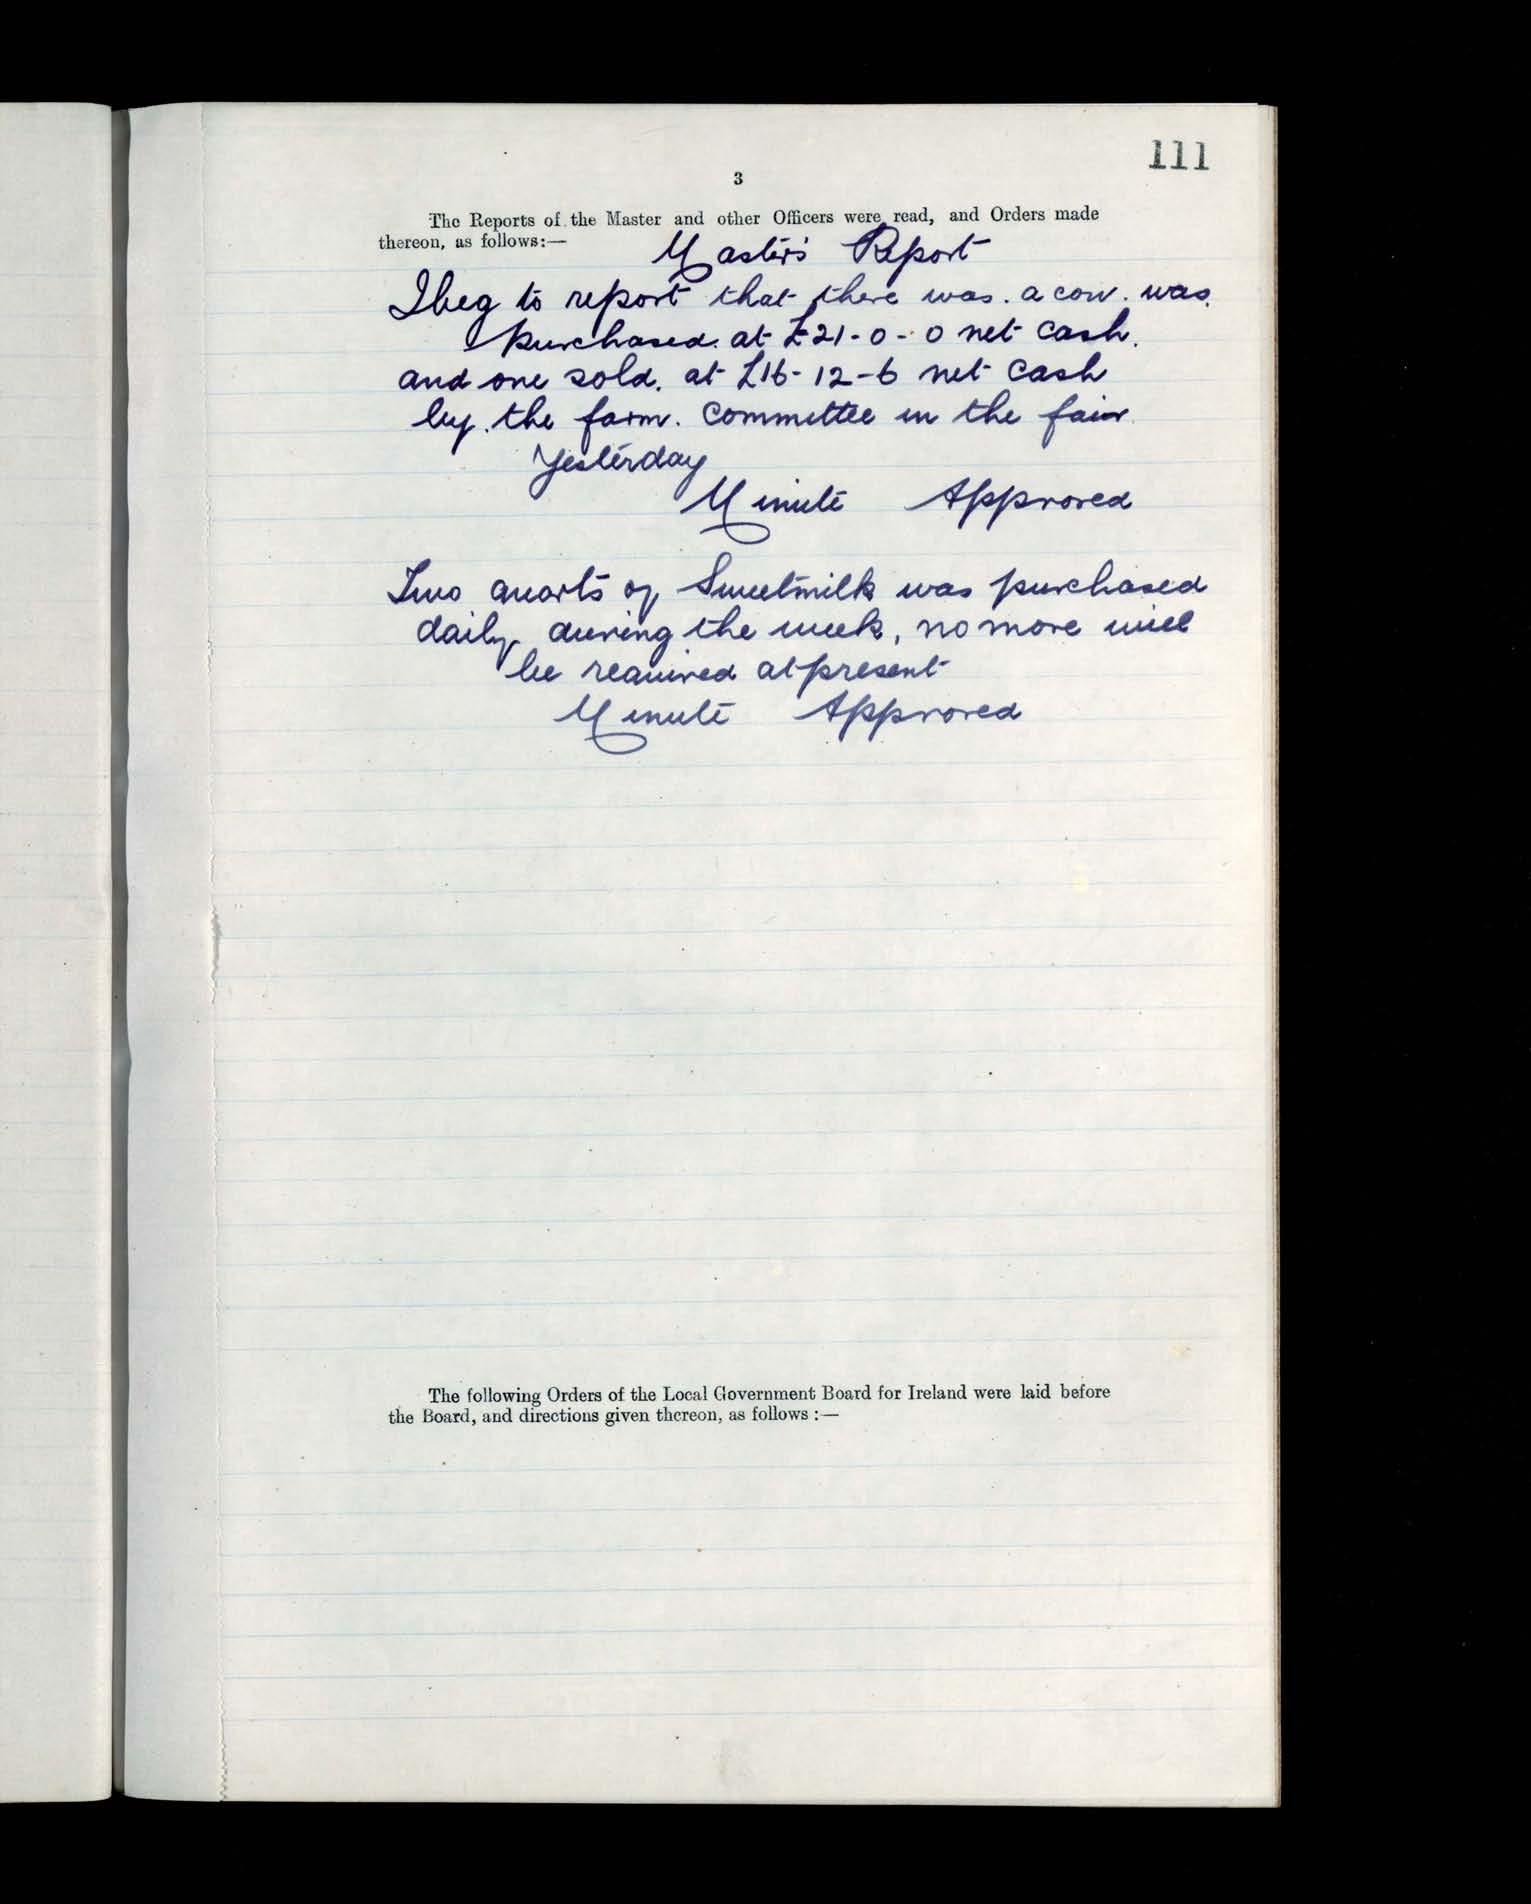 111
3
The Reports of the Master and other Officers were read, and Orders made
thereon, as follows:—
Master's Report
I beg to report that there was. a cow. was.
purchased. at £21-0-0 net cash.
and one sold. at £16-12-6 net cash
by. the farm. Committee in the fair
Yesterday
Minute Approved
Two quarts of Sweetmilk was purchased
daily during the week, no more will
be required at present
Minute Approved
The following Orders of the Local Government Board for Ireland were laid before
the Board, and directions given thereon, as follows :—